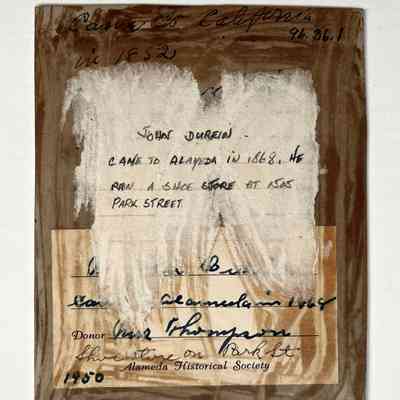 Came to California
96.36.1
in 1852
JOHN DUREIN.
CAME TO ALAMEDA IN 1868. HE
RAN A SHOE STORE AT 1505
PARK STREET
Alameda in 1868
Donor Thompson
Shoe store on Park St
1950
Alameda Historical Society